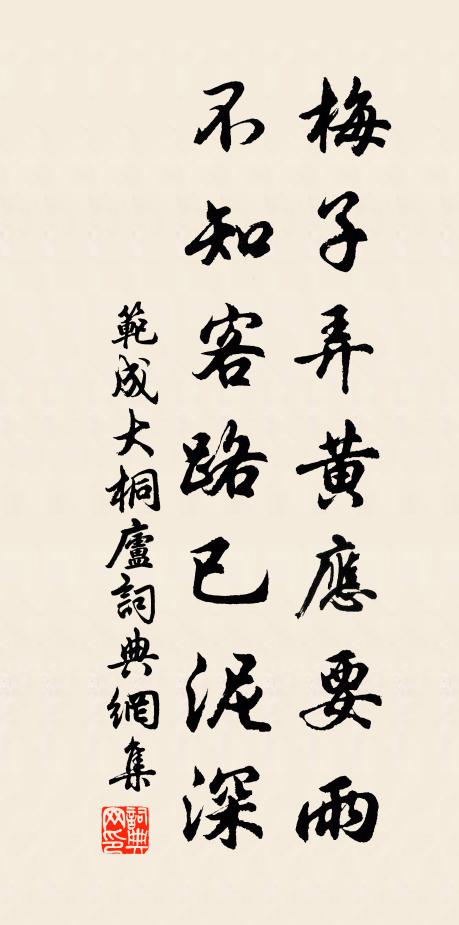 梅子弄黃應要雨
不知客路已泥深
範成大桐廬詞典網集
詞典網印